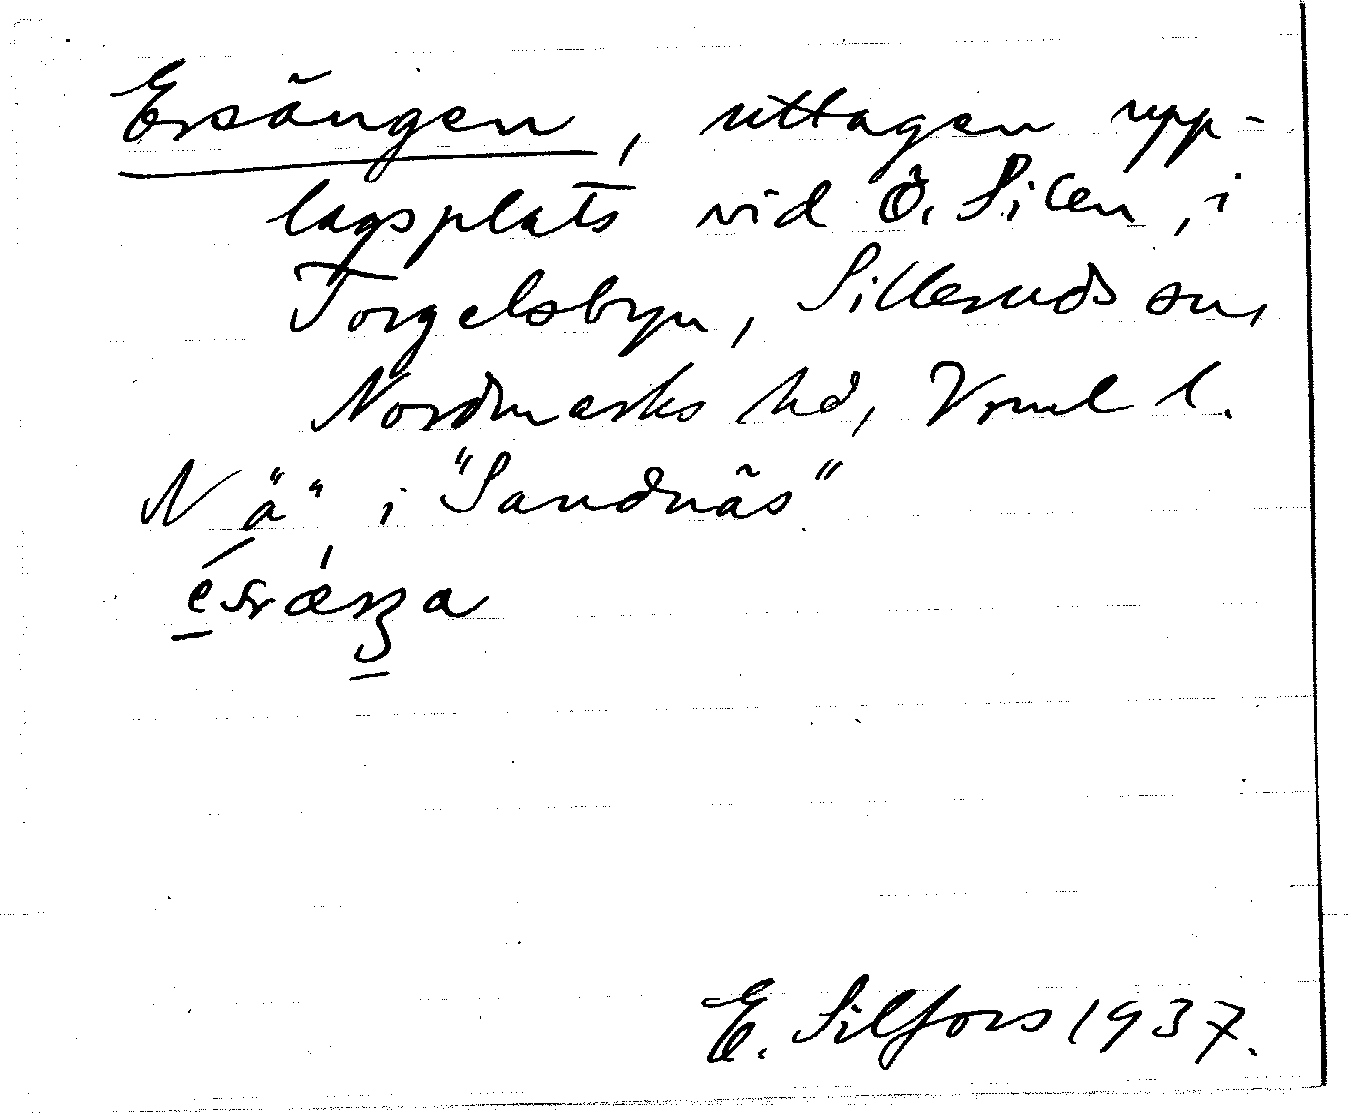 Ersängen, uttagen upp-
lagsplats vid Ö. Silen, i
Torgelsbyn, Silleruds sn,
Nordmarks hd, Vrml l.
N "ä" i "Sandnäs"
E. Silfors 1937.